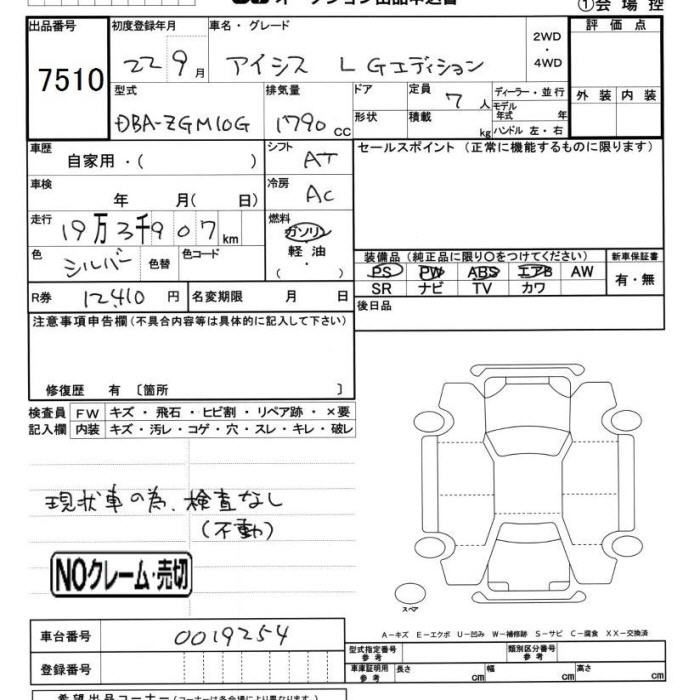 ①会場控
出品番号 初度登録年月 車名・グレード 2WD・4WD 評価点
7510 22 9月 アイシス L Gエディション
型式 排気量 ドア 定員 7人 ディーラー・並行 外装 内装
モデル年式 年
DBA-ZGM10G 1790cc 形状 積載 kg ハンドル 左・右
車歴 自家用・( ) シフト AT セールスポイント(正常に機能するものに限ります)
車検 年 月( 日) 冷房 AC
走行 19万3千907km 燃料 ガソリン
軽油
・
( )
色 シルバー 色替 色コード 装備品(純正品に限り○をつけてください) 新車保証書
PS PW ABS エアB AW 有・無
SR ナビ TV カワ
R券 12,410円 名変期限 月 日 後日品
注意事項申告欄(不具合内容等は具体的に記入して下さい)
修復歴 有 〔箇所 〕
検査員 FW キズ・飛石・ヒビ割・リペア跡・×要
記入欄 内装 キズ・汚レ・コゲ・穴・スレ・キレ・破レ
現状車の為、検査なし
(不動)
NOクレーム・売切
スペア
A-キズ E-エクボ U-凹み W-補修跡 S-サビ C-腐食 XX-交換済
車台番号 0019254 型式指定番号 参考 類別区分番号 参考
登録番号 車庫証明用 参考 長さ cm 幅 cm 高さ cm
希望出品コーナー(コーナーは各会場により異なります)